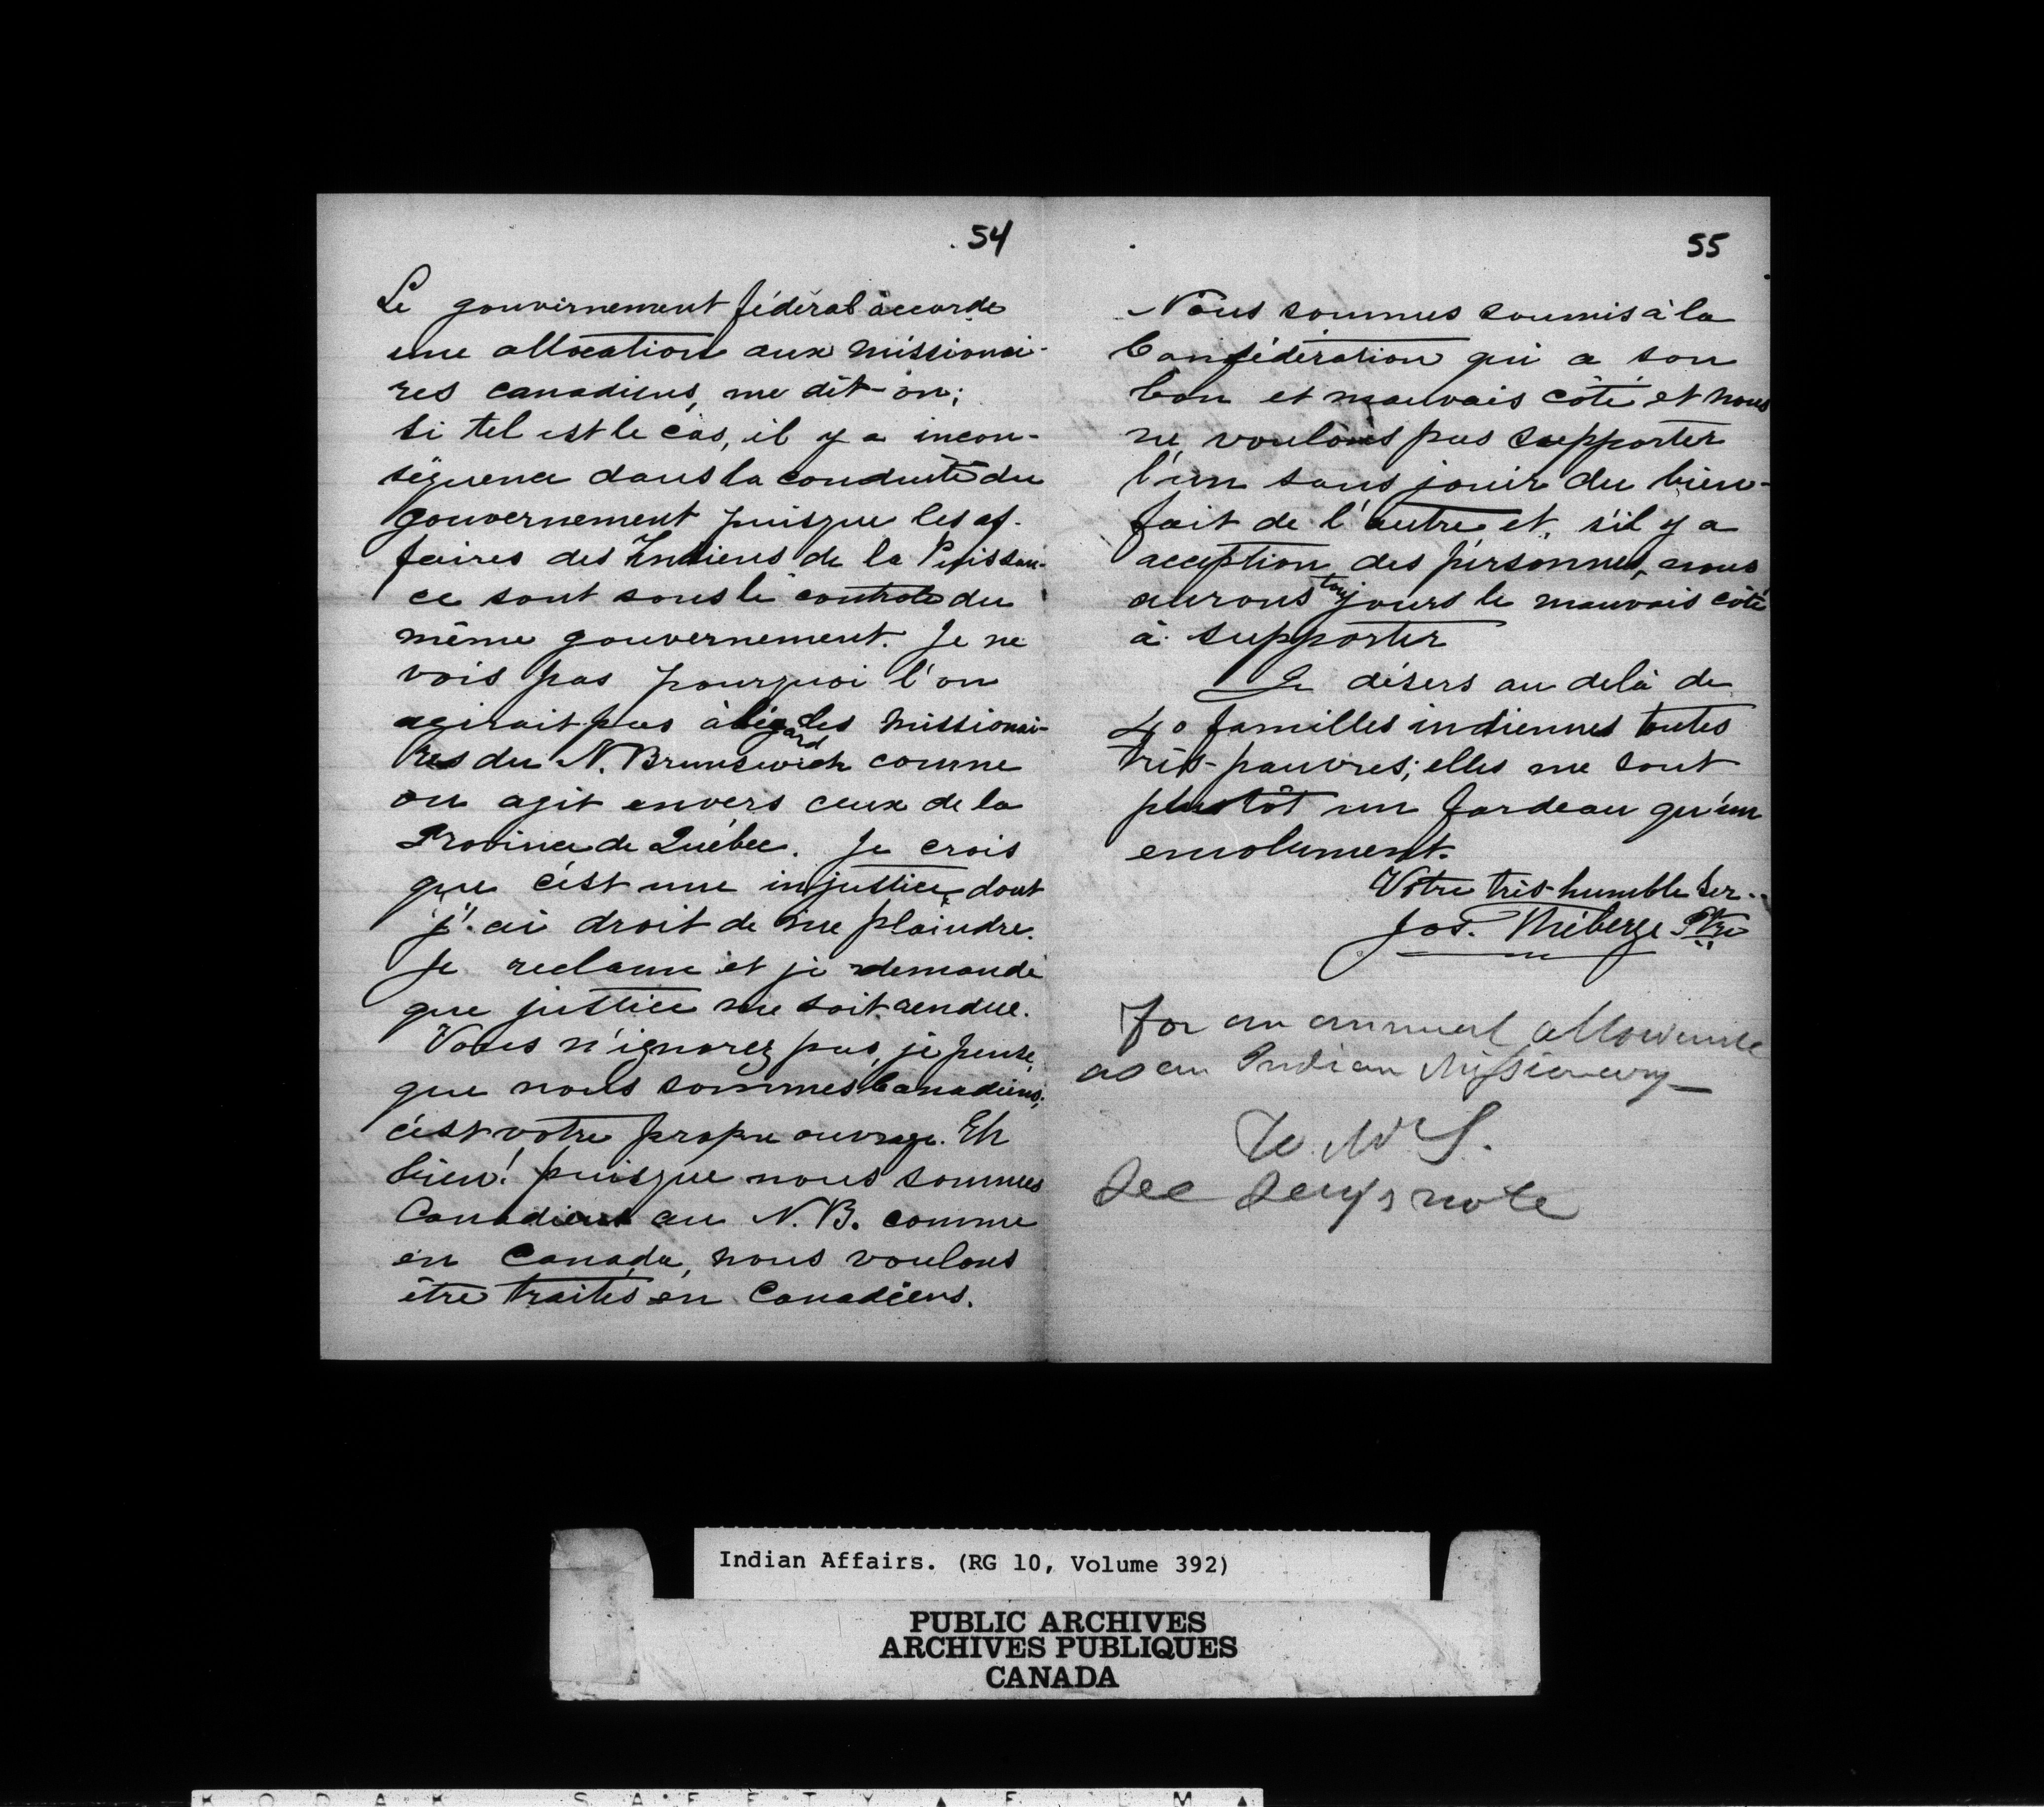 54
Le gouvernement fédéral accorde
une allocation aux missionai-
res canadiens, me dit-on;
Si tel est le cas, il y a incon-
séquence dans la conduite du
gouvernement puisque les af-
faires des Indiens de la Puissan-
ce sont sous le controle du
même gouvernement. Je ne
vois pas pourquoi l'on
agirait pas à l'égard des missionai-
res du N. Brunswick comme
on agit envers ceux de la
Province de Québec. Je crois
que c'est une injustice dont
j'ai droit de me plaindre.
Je reclame et je demande
que justice me soit rendue.
Vous n'ignorez pas, je pense,
que nous sommes Canadiens;
c'est votre propre ouvrage. Eh
bien! puisque nous sommes
Canadiens au N. B. comme
en Canada, nous voulons
être traités en Canadiens.
55
Nous sommes soumis à la
Confédération qui a son
bon et mauvais côté et nous
ne voulons pas supporter
l'un sans jouir du bien-
fait de l'autre et, s'il y a
acception des personnes, nous
aurons toujours le mauvais côté
à supporter
Je désers au delà de
40 familles indiennes toutes
très-pauvres; elles me sont
plustôt un fardeau qu'un
émolument.
Votre très-humble Ser..
Jos. Théberge Ptre
For an annual allowance
as an Indian Missionary
See Secy's note
Indian Affairs. (RG 10, Volume 392)
PUBLIC ARCHIVES
ARCHIVES PUBLIQUES
CANADA
KODAK SAFETY FILM